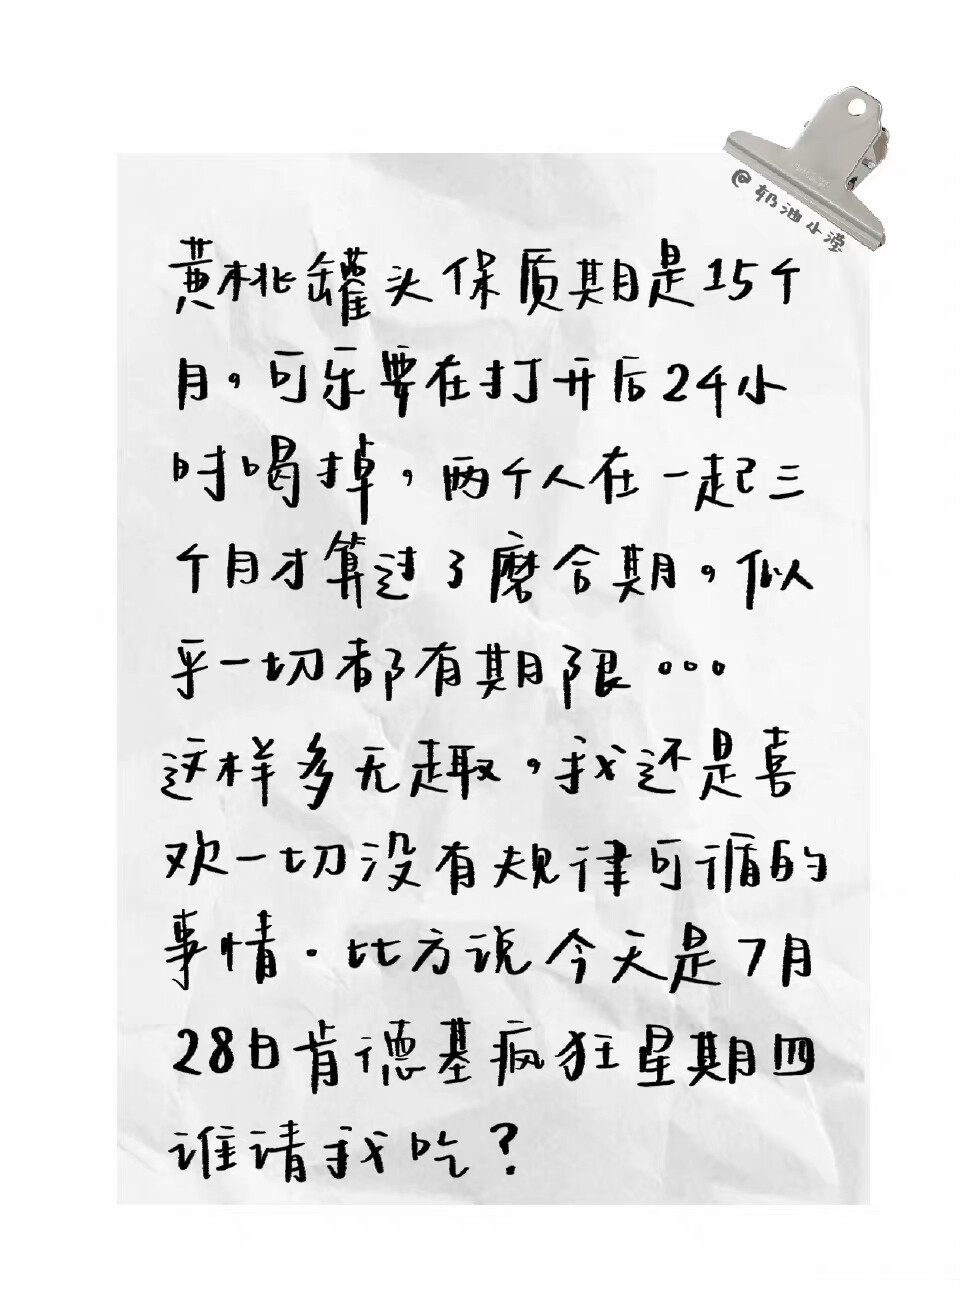 @奶油小滢
黄桃罐头保质期是15个
月，可乐要在打开后24小
时喝掉，两个人在一起三
个月才算过了磨合期，似
乎一切都有期限。。。
这样多无趣，我还是喜
欢一切没有规律可循的
事情．比方说今天是7月
28日肯德基疯狂星期四
谁请我吃？